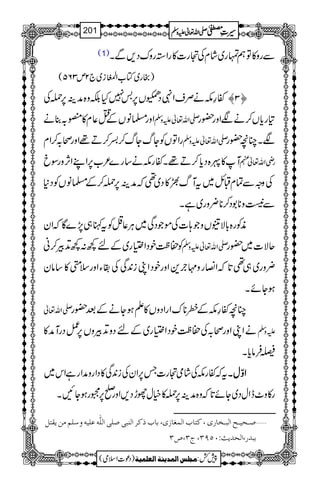 سیرتِ مصطفی صلی اللہ تعالیٰ علیہ وسلم
201
سے روکا تو ہم تمہاری شام کی تجارت کا راستہ روک دیں گے۔(۱)
(بخاری کتاب المغازی ج۲ ص۵۶۳)
﴿۳﴾ کفار مکہ نے صرف انہی دھمکیوں پر بس نہیں کیا بلکہ وہ مدینہ پر حملہ کی
تیاریاں کرنے لگے اور حضور صلی اللہ تعالیٰ علیہ وسلم اور مسلمانوں کے قتل عام کا منصوبہ بنانے
لگے۔ چنانچہ حضور صلی اللہ تعالیٰ علیہ وسلم راتوں کو جاگ جاگ کر بسر کرتے تھے اور صحابہ کرام
رضی اللہ تعالیٰ عنہم آپ کا پہرہ دیا کرتے تھے۔ کفار مکہ نے سارے عرب پر اپنے اثر و رسوخ
کی وجہ سے تمام قبائل میں یہ آگ بھڑکا دی تھی کہ مدینہ پر حملہ کرکے مسلمانوں کو دنیا
سے نیست و نابود کرنا ضروری ہے۔
مذکورہ بالا تینوں وجوہات کی موجودگی میں ہر عاقل کو یہ کہنا ہی پڑے گا کہ ان
حالات میں حضور صلی اللہ تعالیٰ علیہ وسلم کو حفاظت خود اختیاری کے لئے کچھ نہ کچھ تدبیر کرنی
ضروری ہی تھی تا کہ انصار و مہاجرین اور خود اپنی زندگی کی بقاء اور سلامتی کا سامان
ہوجائے۔
چنانچہ کفار مکہ کے خطرناک ارادوں کا علم ہو جانے کے بعد حضور صلی اللہ تعالیٰ
علیہ وسلم نے اپنی اور صحابہ کی حفاظت خود اختیاری کے لئے دو تدبیروں پر عمل درآمد کا
فیصلہ فرمایا۔
اوّل۔ یہ کہ کفار مکہ کی شامی تجارت جس پر ان کی زندگی کا دارومدار ہے اس میں
رکاوٹ ڈال دی جائے تا کہ وہ مدینہ پر حملہ کا خیال چھوڑ دیں اور صلح پر مجبور ہو جائیں۔
صحیح البخاری، کتاب المغازی، باب ذکر النبی صلی اللّٰہ علیہ وسلم من یقتل
ببدر، الحدیث: ۳۹۵۰، ج۳، ص۳
پیش کش: مجلس المدینة العلمیة (دعوتِ اسلامی)